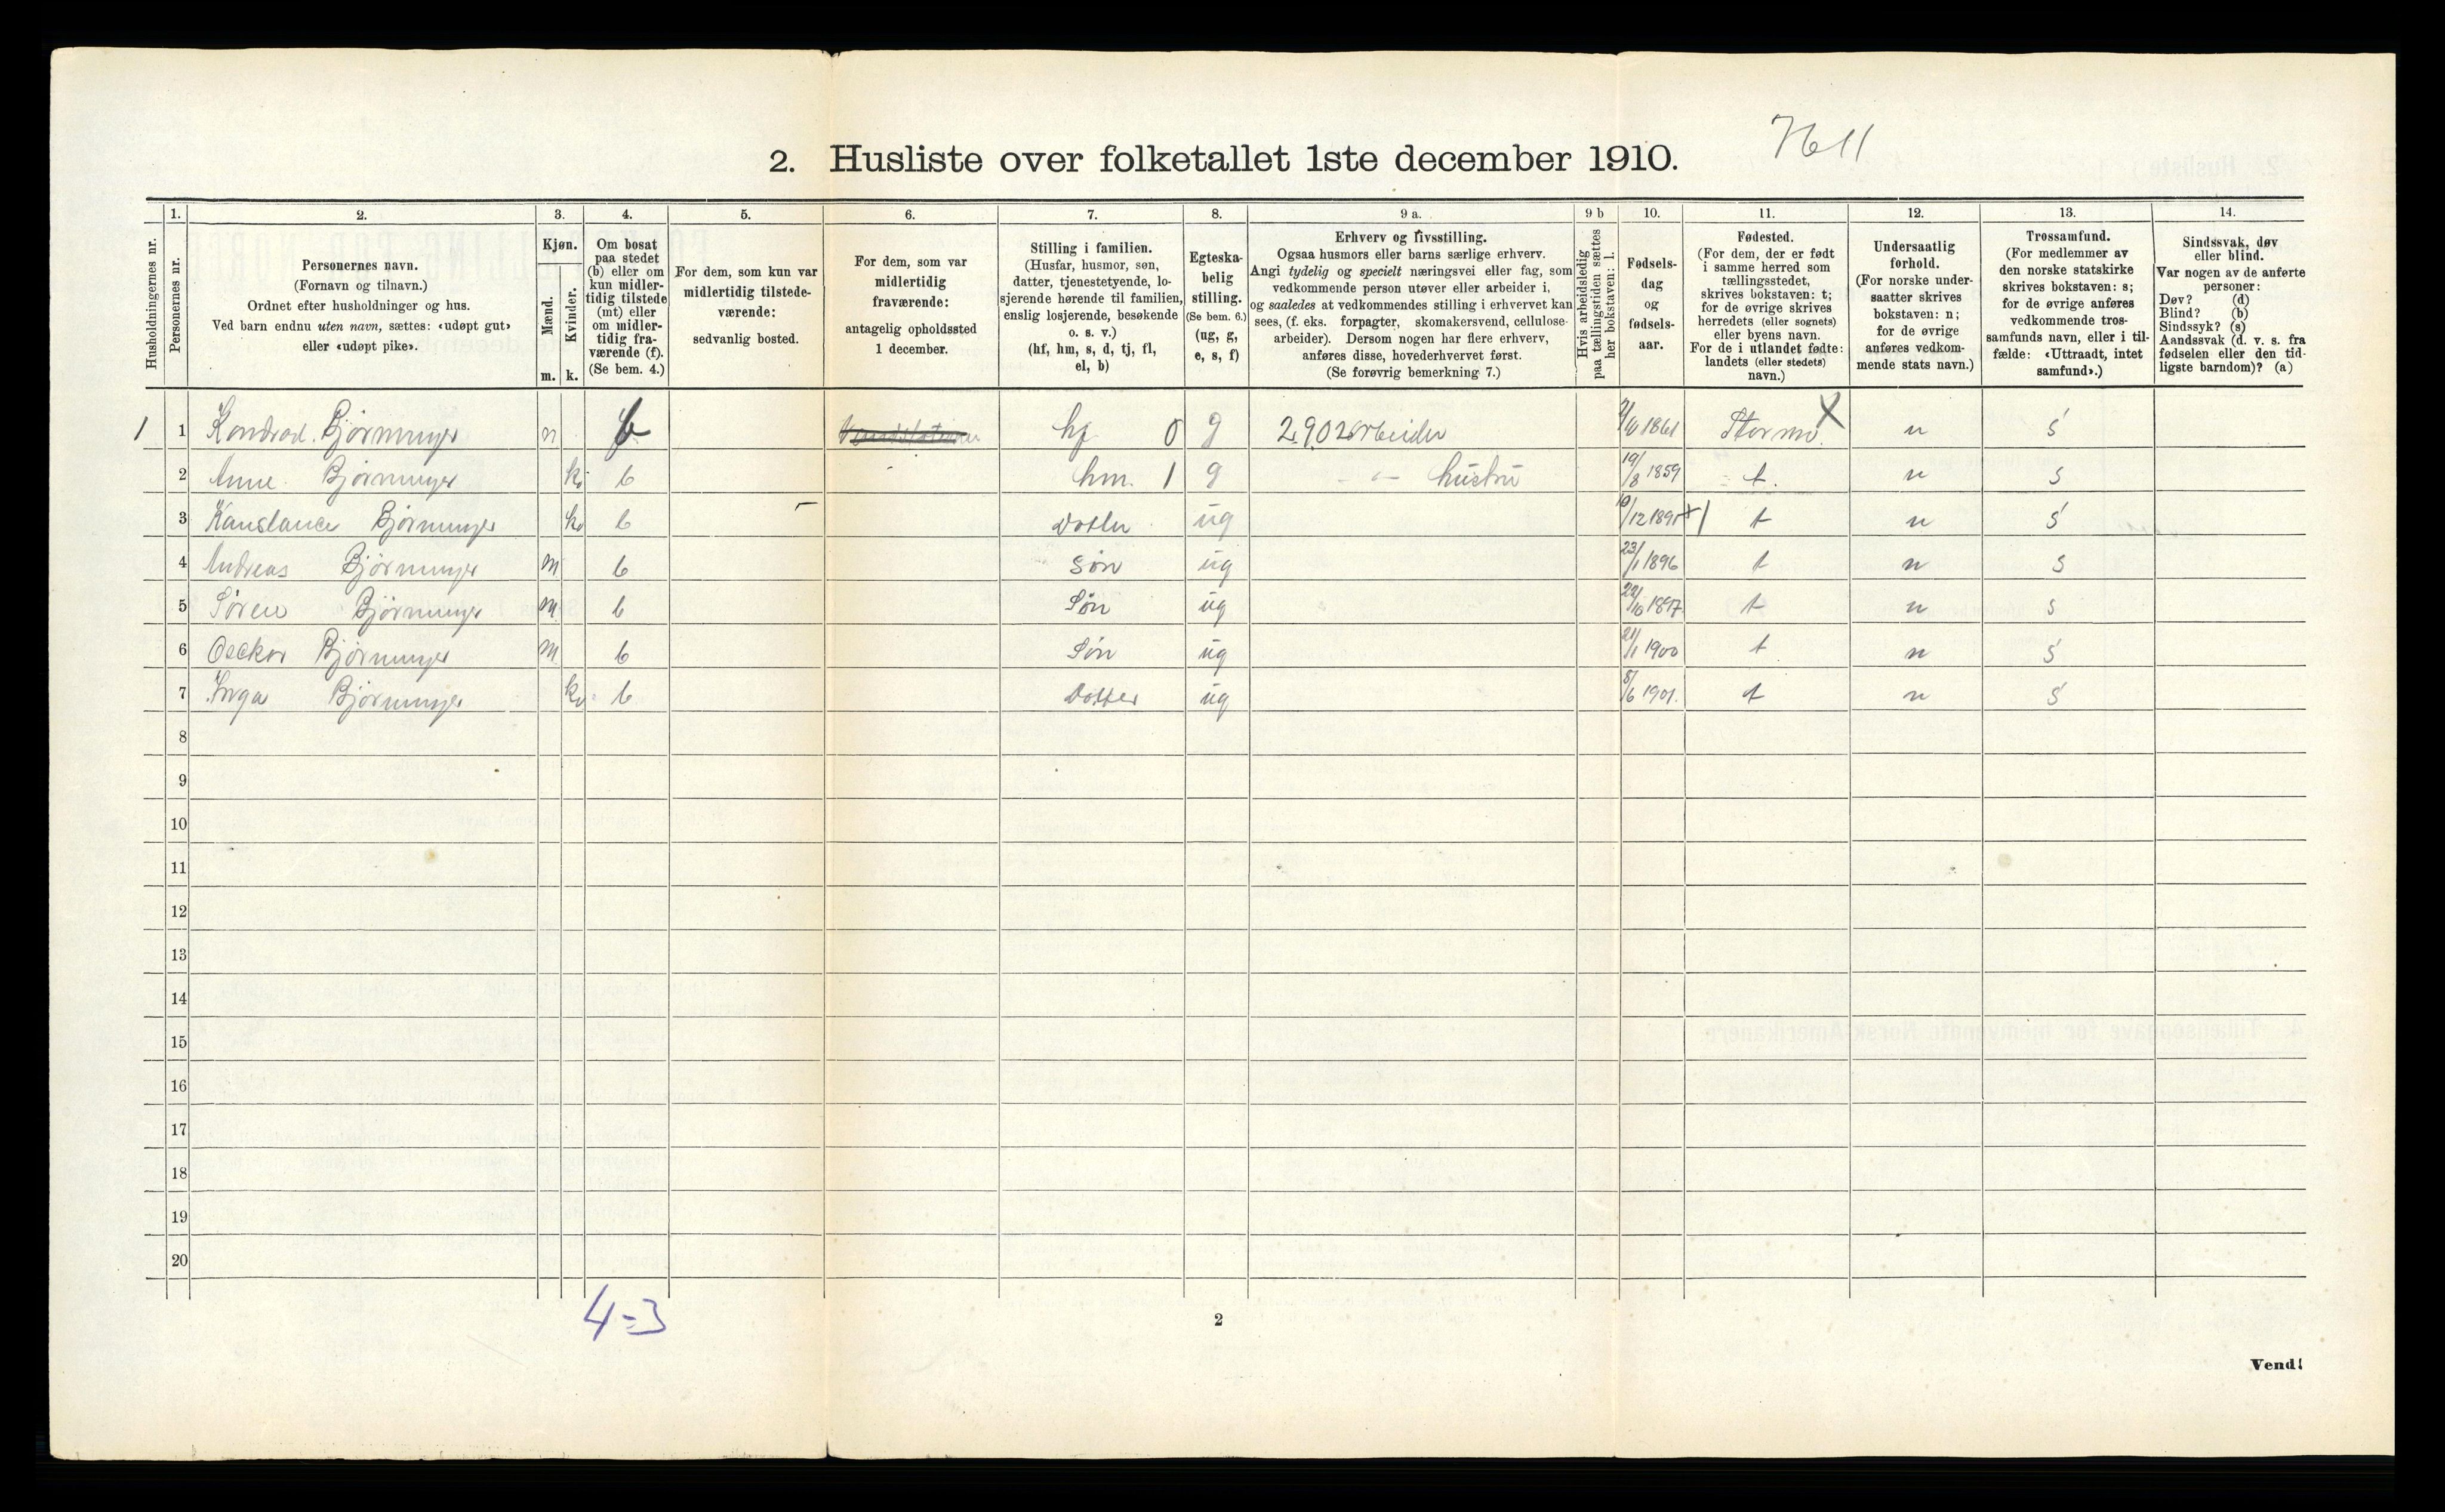 2. Husliste over folketallet 1ste december 1910.
1. 2. 3. 4. 5. 6. 7. 8. 9 a. 9 b 10. 11. 12. 13. 14.
Husholdningernes nr.
Personernes nr.
Personernes navn.
(Fornavn og tilnavn.)
Ordnet efter husholdninger og hus.
Ved barn endnu uten navn, sættes: «udøpt gut»
eller «udøpt pike».
Kjøn.
Mænd.
Kvinder.
m. k.
Om bosat
paa stedet
(b) eller om
kun midler-
tidig tilstede
(mt) eller
om midler-
tidig fra-
værende (f).
(Se bem. 4.)
For dem, som kun var
midlertidig tilstede-
værende:
sedvanlig bosted.
For dem, som var
midlertidig
fraværende:
antagelig opholdssted
1 december.
Stilling i familien.
(Husfar, husmor, søn,
datter, tjenestetyende, lo-
sjerende hørende til familien,
enslig losjerende, besøkende
o. s. v.)
(hf, hm, s, d, tj, fl,
el, b)
Egteska-
belig
stilling.
(Se bem. 6.)
(ug, g,
e, s, f)
Erhverv og livsstilling.
Ogsaa husmors eller barns særlige erhverv.
Angi tydelig og specielt næringsvei eller fag, som
vedkommende person utøver eller arbeider i,
og saaledes at vedkommendes stilling i erhvervet kan
sees, (f. eks. forpagter, skomakersvend, cellulose-
arbeider). Dersom nogen har flere erhverv,
anføres disse, hovederhvervet først.
(Se forøvrig bemerkning 7.)
Hvis arbeidsledig
paa tællingstiden sættes
her bokstaven: l.
Fødsels-
dag
og
fødsels-
aar.
Fødested.
(For dem, der er født
i samme herred som
tællingsstedet,
skrives bokstaven: t;
for de øvrige skrives
herredets (eller sognets)
eller byens navn.
For de i utlandet fødte:
landets (eller stedets)
navn.)
Undersaatlig
forhold.
(For norske under-
saatter skrives
bokstaven: n;
for de øvrige
anføres vedkom-
mende stats navn.)
Trossamfund.
(For medlemmer av
den norske statskirke
skrives bokstaven: s;
for de øvrige anføres
vedkommende tros-
samfunds navn, eller i til-
fælde: «Uttraadt, intet
samfund».)
Sindssvak, døv
eller blind.
Var nogen av de anførte
personer:
Døv? (d)
Blind? (b)
Sindssyk? (s)
Aandssvak (d. v. s. fra
fødselen eller den tid-
ligste barndom)? (a)
1 1 Kondrad. m b hf 0 g 2902 arbeider 1861 X n s
2 Anne k b hm. 1 g - " - hustru 19/8 1859 t. n s
3 k b Datter ug t n s
4 Andreas m b Søn ug 23/1 1896 t n s
5 Søren m b Søn ug t n s
6 m b Søn ug 21/1 1900 t n s
7 Inga k b Datter ug 8/6 1901. t n s
8
9
10
11
12
13
14
15
16
17
18
19
20
4=3
2
Vend!